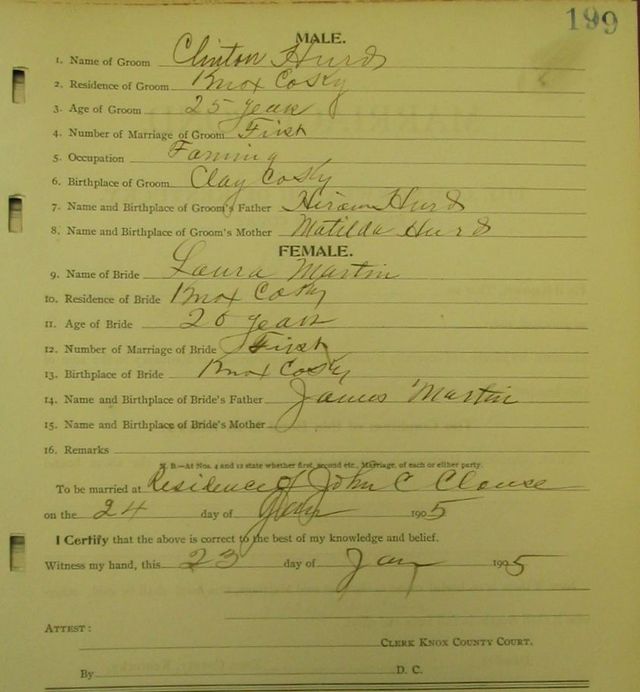 199
MALE.
1. Name of Groom Clinton Hurd
2. Residence of Groom Knox Co Ky
3. Age of Groom 25 years
4. Number of Marriage of Groom First
5. Occupation Farming
6. Birthplace of Groom Clay Co Ky
7. Name and Birthplace of Groom's Father Hiram Hurd
8. Name and Birthplace of Groom's Mother Matilda Hurd
FEMALE.
9. Name of Bride Laura Martin
10. Residence of Bride Knox Co Ky
11. Age of Bride 20 years
12. Number of Marriage of Bride First
13. Birthplace of Bride Knox Co Ky
14. Name and Birthplace of Bride's Father James Martin
15. Name and Birthplace of Bride's Mother
16. Remarks
N. B.—At Nos. 4 and 12 state whether first, second etc., Marriage, of each or either party.
To be married at Residence of John C Clouse
on the 24 day of Jany 1905
I Certify that the above is correct to the best of my knowledge and belief.
Witness my hand, this 23 day of Jany 1905
ATTEST:
CLERK KNOX COUNTY COURT.
By D. C.